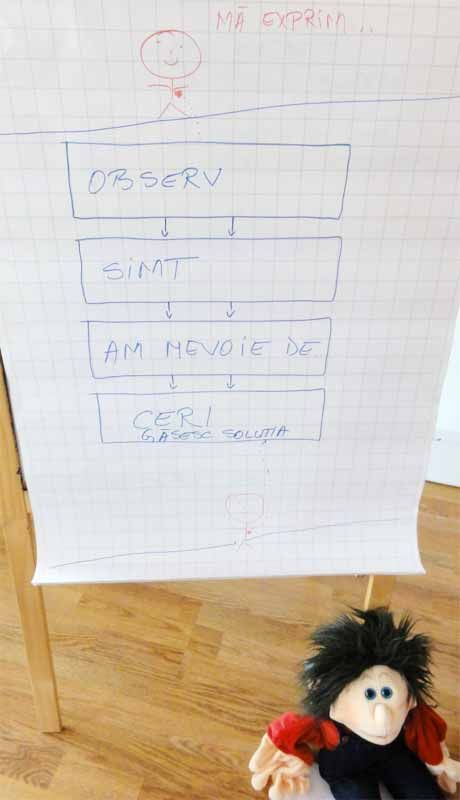 MĂ EXPRIM..
OBSERV
SIMT
AM NEVOIE DE
CERI
GĂSESC SOLUȚIA